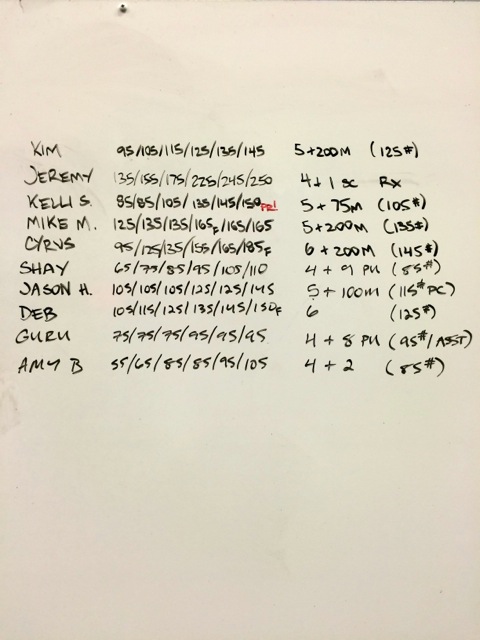 KIM 95/105/115/125/135/145 5+200M (125#)
JEREMY 135/155/175/225/245/250 4+1 SC RX
KELLI S. 85/85/105/135/145/150 PR! 5+75M (105#)
MIKE M. 125/135/135/165F/165/165 5+200M (135#)
CYRUS 95/125/135/155/165/185F 6+200M (145#)
SHAY 65/75/85/95/105/110 4+9 PU (85#)
JASON H. 105/105/105/125/125/145 5+100M (115# PC)
DEB 105/115/125/135/145/150F 6 (125#)
GURU 75/75/75/95/95/95 4+8 PU (95#/ASST)
AMY B 55/65/85/85/95/105 4+2 (85#)